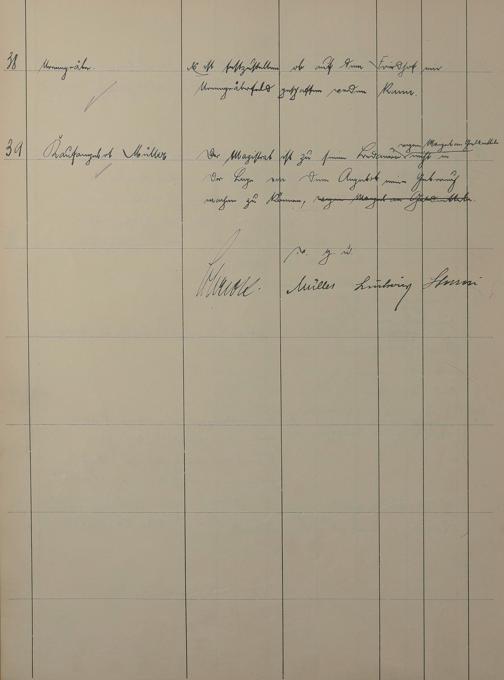 38 Urnengräber. Es ist festzustellen ob auf dem Friedhof ein
Urnengräberfeld geschaffen werden kann.
wegen Mangel an Geldmitteln
39 Kaufangebot Müller Der Magistrat ist zu seinem Bedauern nicht in
der Lage von dem Angebot einen Gebrauch
machen zu können, wegen Mangel an Geldmitteln.
v. g. u.
Müller Ludwig